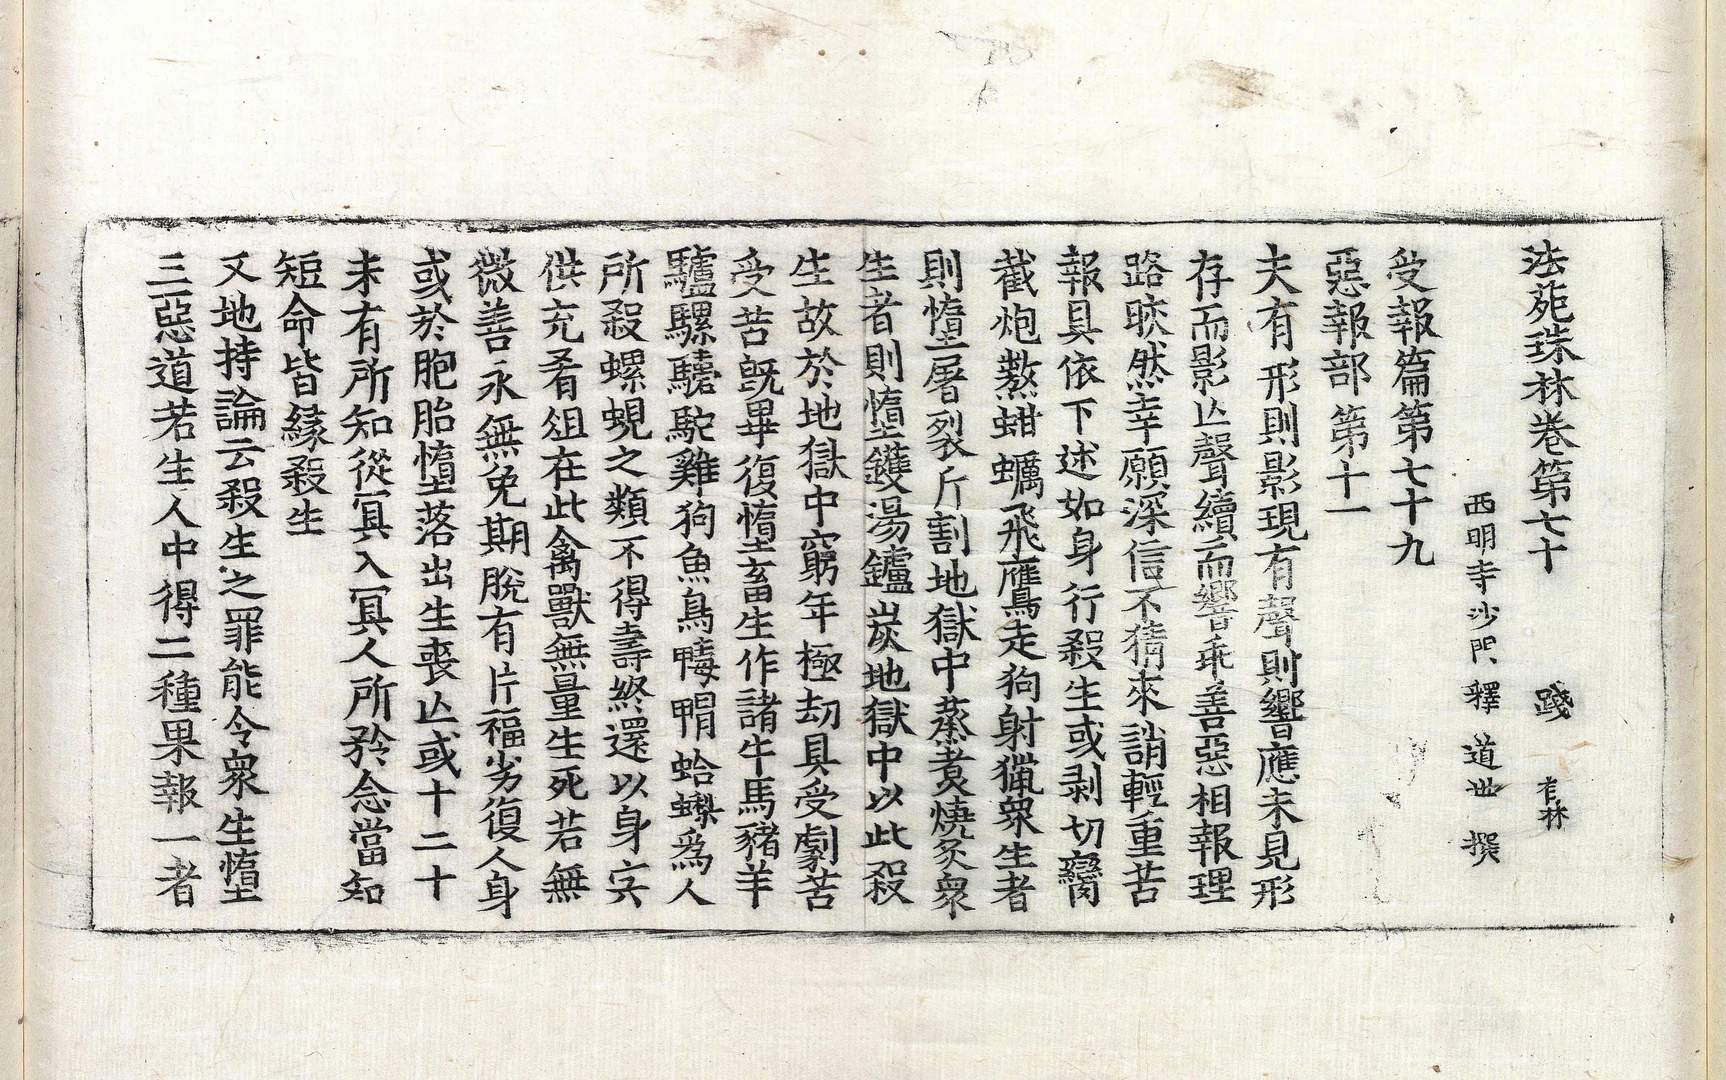 法苑珠林卷第七十 踐 有林
西明寺沙門釋 道世 撰
受報篇第七十九
惡報部第十一
夫有形則影現有聲則響應未見形
存而影亾聲續而響乖善惡相報理
路昞然幸願深信不猜來誚輕重苦
報具依下述如身行殺生或剥切臠
截炮熬蚶蠣飛鷹走狗射獵衆生者
則墮屠裂斤割地獄中蒸煮燒炙衆
生者則墮鑊湯鑪炭地獄中以此殺
生故於地獄中窮年極劫具受劇苦
受苦旣畢復墮畜生作諸牛馬豬羊
驢騾駝雞狗魚鳥蛤爲人
所殺螺蜆之類不得壽終還以身宍
供充肴俎在此禽獸無量生死若無
微善永無免期脫有片福劣復人身
或於胞胎墮落出生喪亾或十二十
未有所知從冥入冥人所矜念當知
短命皆緣殺生
又地持論云殺生之罪能令衆生墮
三惡道若生人中得二種果報一者